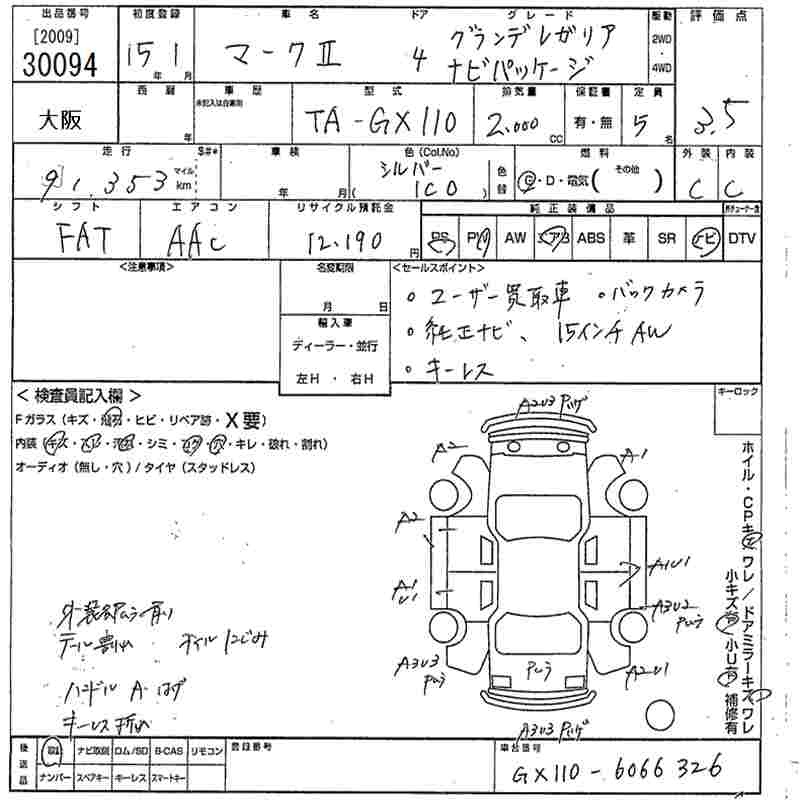 出品番号 初度登録 車名 ドア グレード 駆動 評価点
[2009]
30094
15年 1月 マークⅡ 4 グランデレガリア
ナビパッケージ
2WD
・
4WD
3.5
大阪
西暦 車歴 型式 排気量 保証書 定員
未記入は自家用
年 TA-GX110 2,000 CC 有・無 5名
走行 $#* 車検 色(Col.No) 燃料 外装 内装
91,353 マイル km 年 月 シルバー (1C0) 色替 G・D・電気( その他 ) C C
シフト エアコン リサイクル預託金 純正装備品
FAT AAC 12,190円 PS PW AW エアB ABS 革 SR ナビ DTV
<注意事項> 名変期限 <セールスポイント>
月 日
輸入車
ディーラー・並行
左H・右H
。ユーザー買取車 。バックカメラ
。純正ナビ、15インチAW
。キーレス
<検査員記入欄> キーロック
Fガラス(キズ・飛石・ヒビ・リペア跡・X要)
内装(キズ・・・シミ・・穴・キレ・破れ・割れ)
オーディオ(無し・穴)/タイヤ(スタッドレス)
A3U3
A2 A1
A2
A1
U1
A1U1
A3U2
A3U3
A2U1
A3U3
ホイル・CPキズ ワレ/ドアミラーキズ ワレ
小キズ有 小U有 補修有
テール割れ オイルにじみ
ハンドル A・ハゲ
キーレス
後送品 ナビ取説 ロム/SD B-CAS リモコン 登録番号 車台番号
ナンバー スペアキー キーレス スマートキー
GX110-6066326